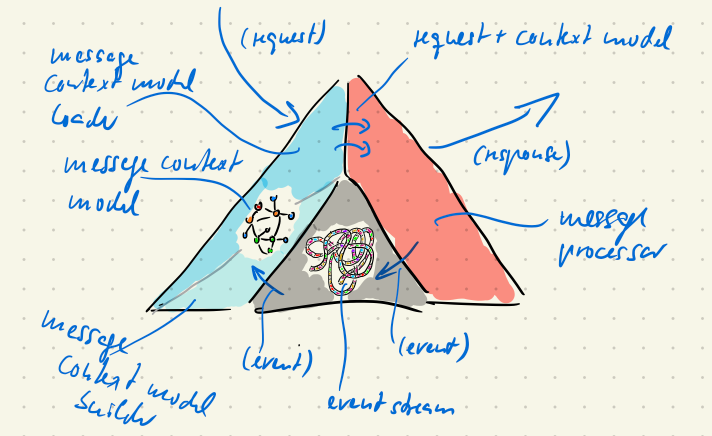 (request)
request + context model
message
context model
loader
(response)
message context
model
message
processor
message
context model
builder
(event)
(event)
event stream